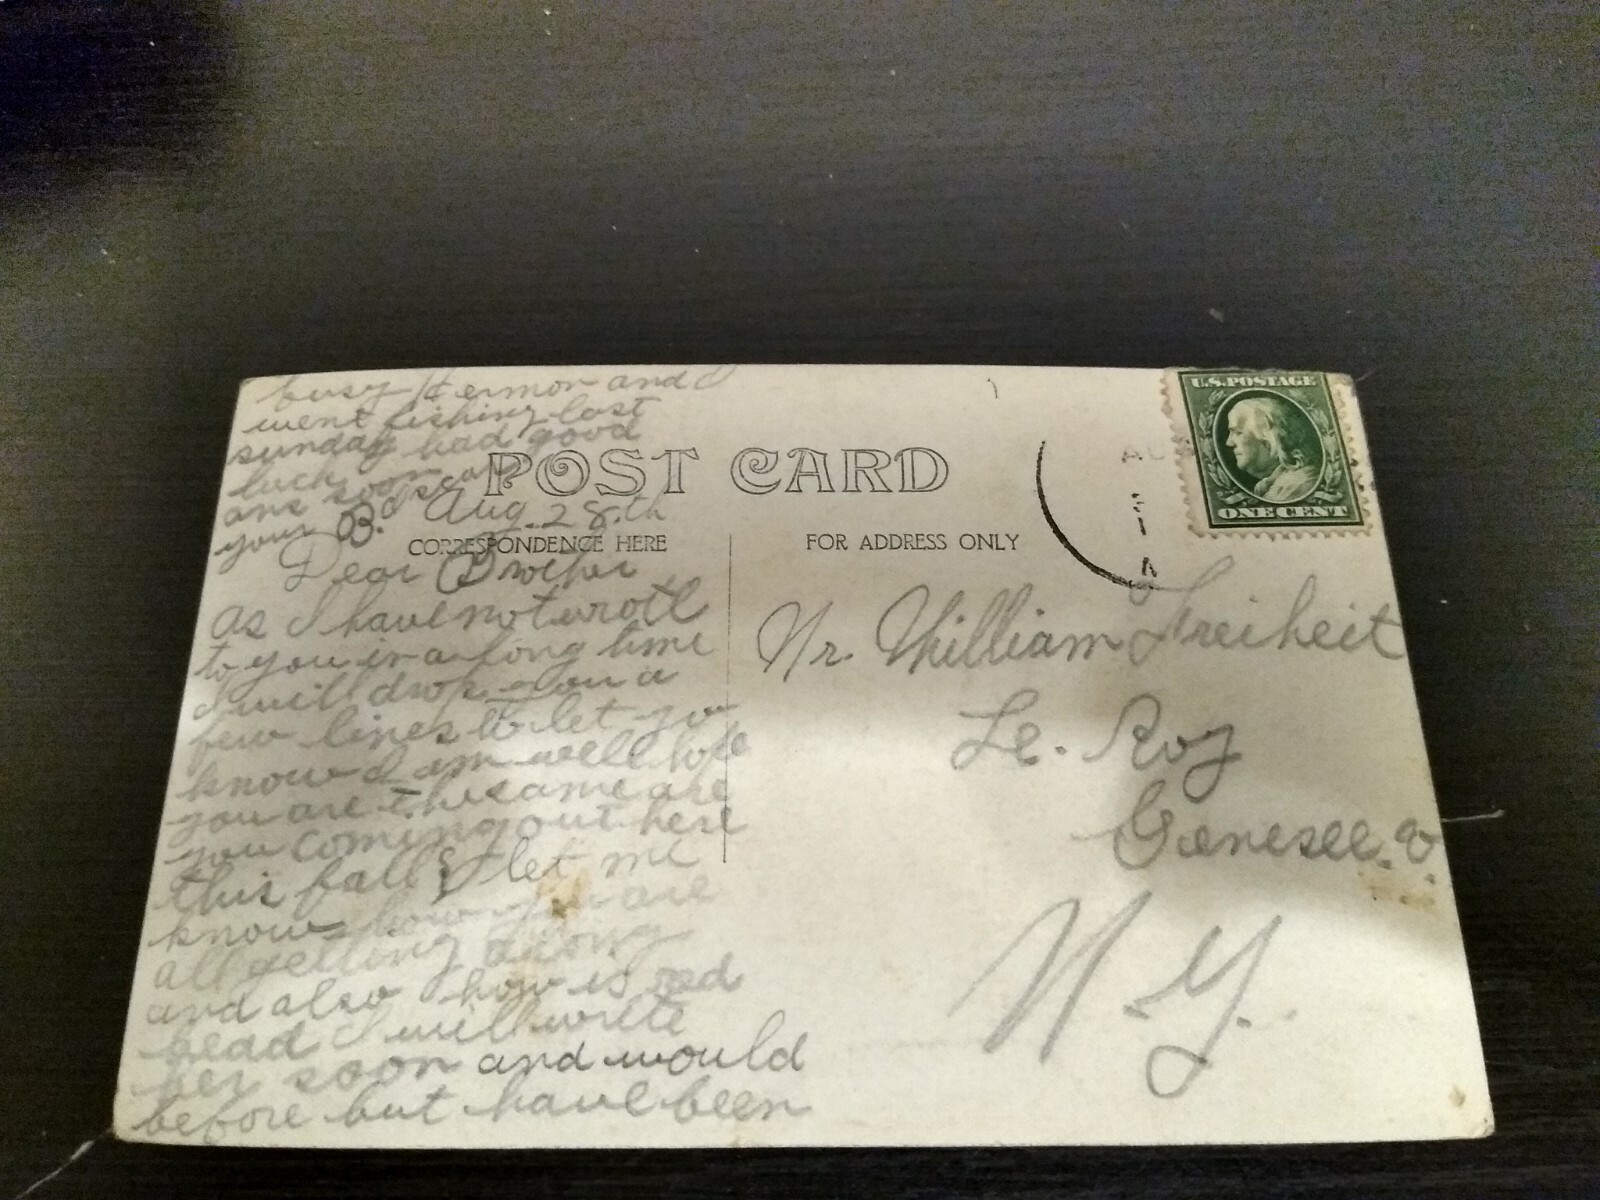 busy Hermon and I
went fishing last
sunday had good
luck
ans soon
your B.
POST CARD
U.S. POSTAGE
ONE CENT
Aug. 28.th
CORRESPONDENCE HERE
FOR ADDRESS ONLY
Dear Brother
as I have not wrote
to you in a long time
I will drop you a
few lines to let yo
know I am well hope
you are the same are
you coming out here
this fall let me
know how you are
all getting along
and also how is red
head I will write
her soon and would
before but have been
Mr. William Freiheit
Le. Roy
Genesee.
N.Y.